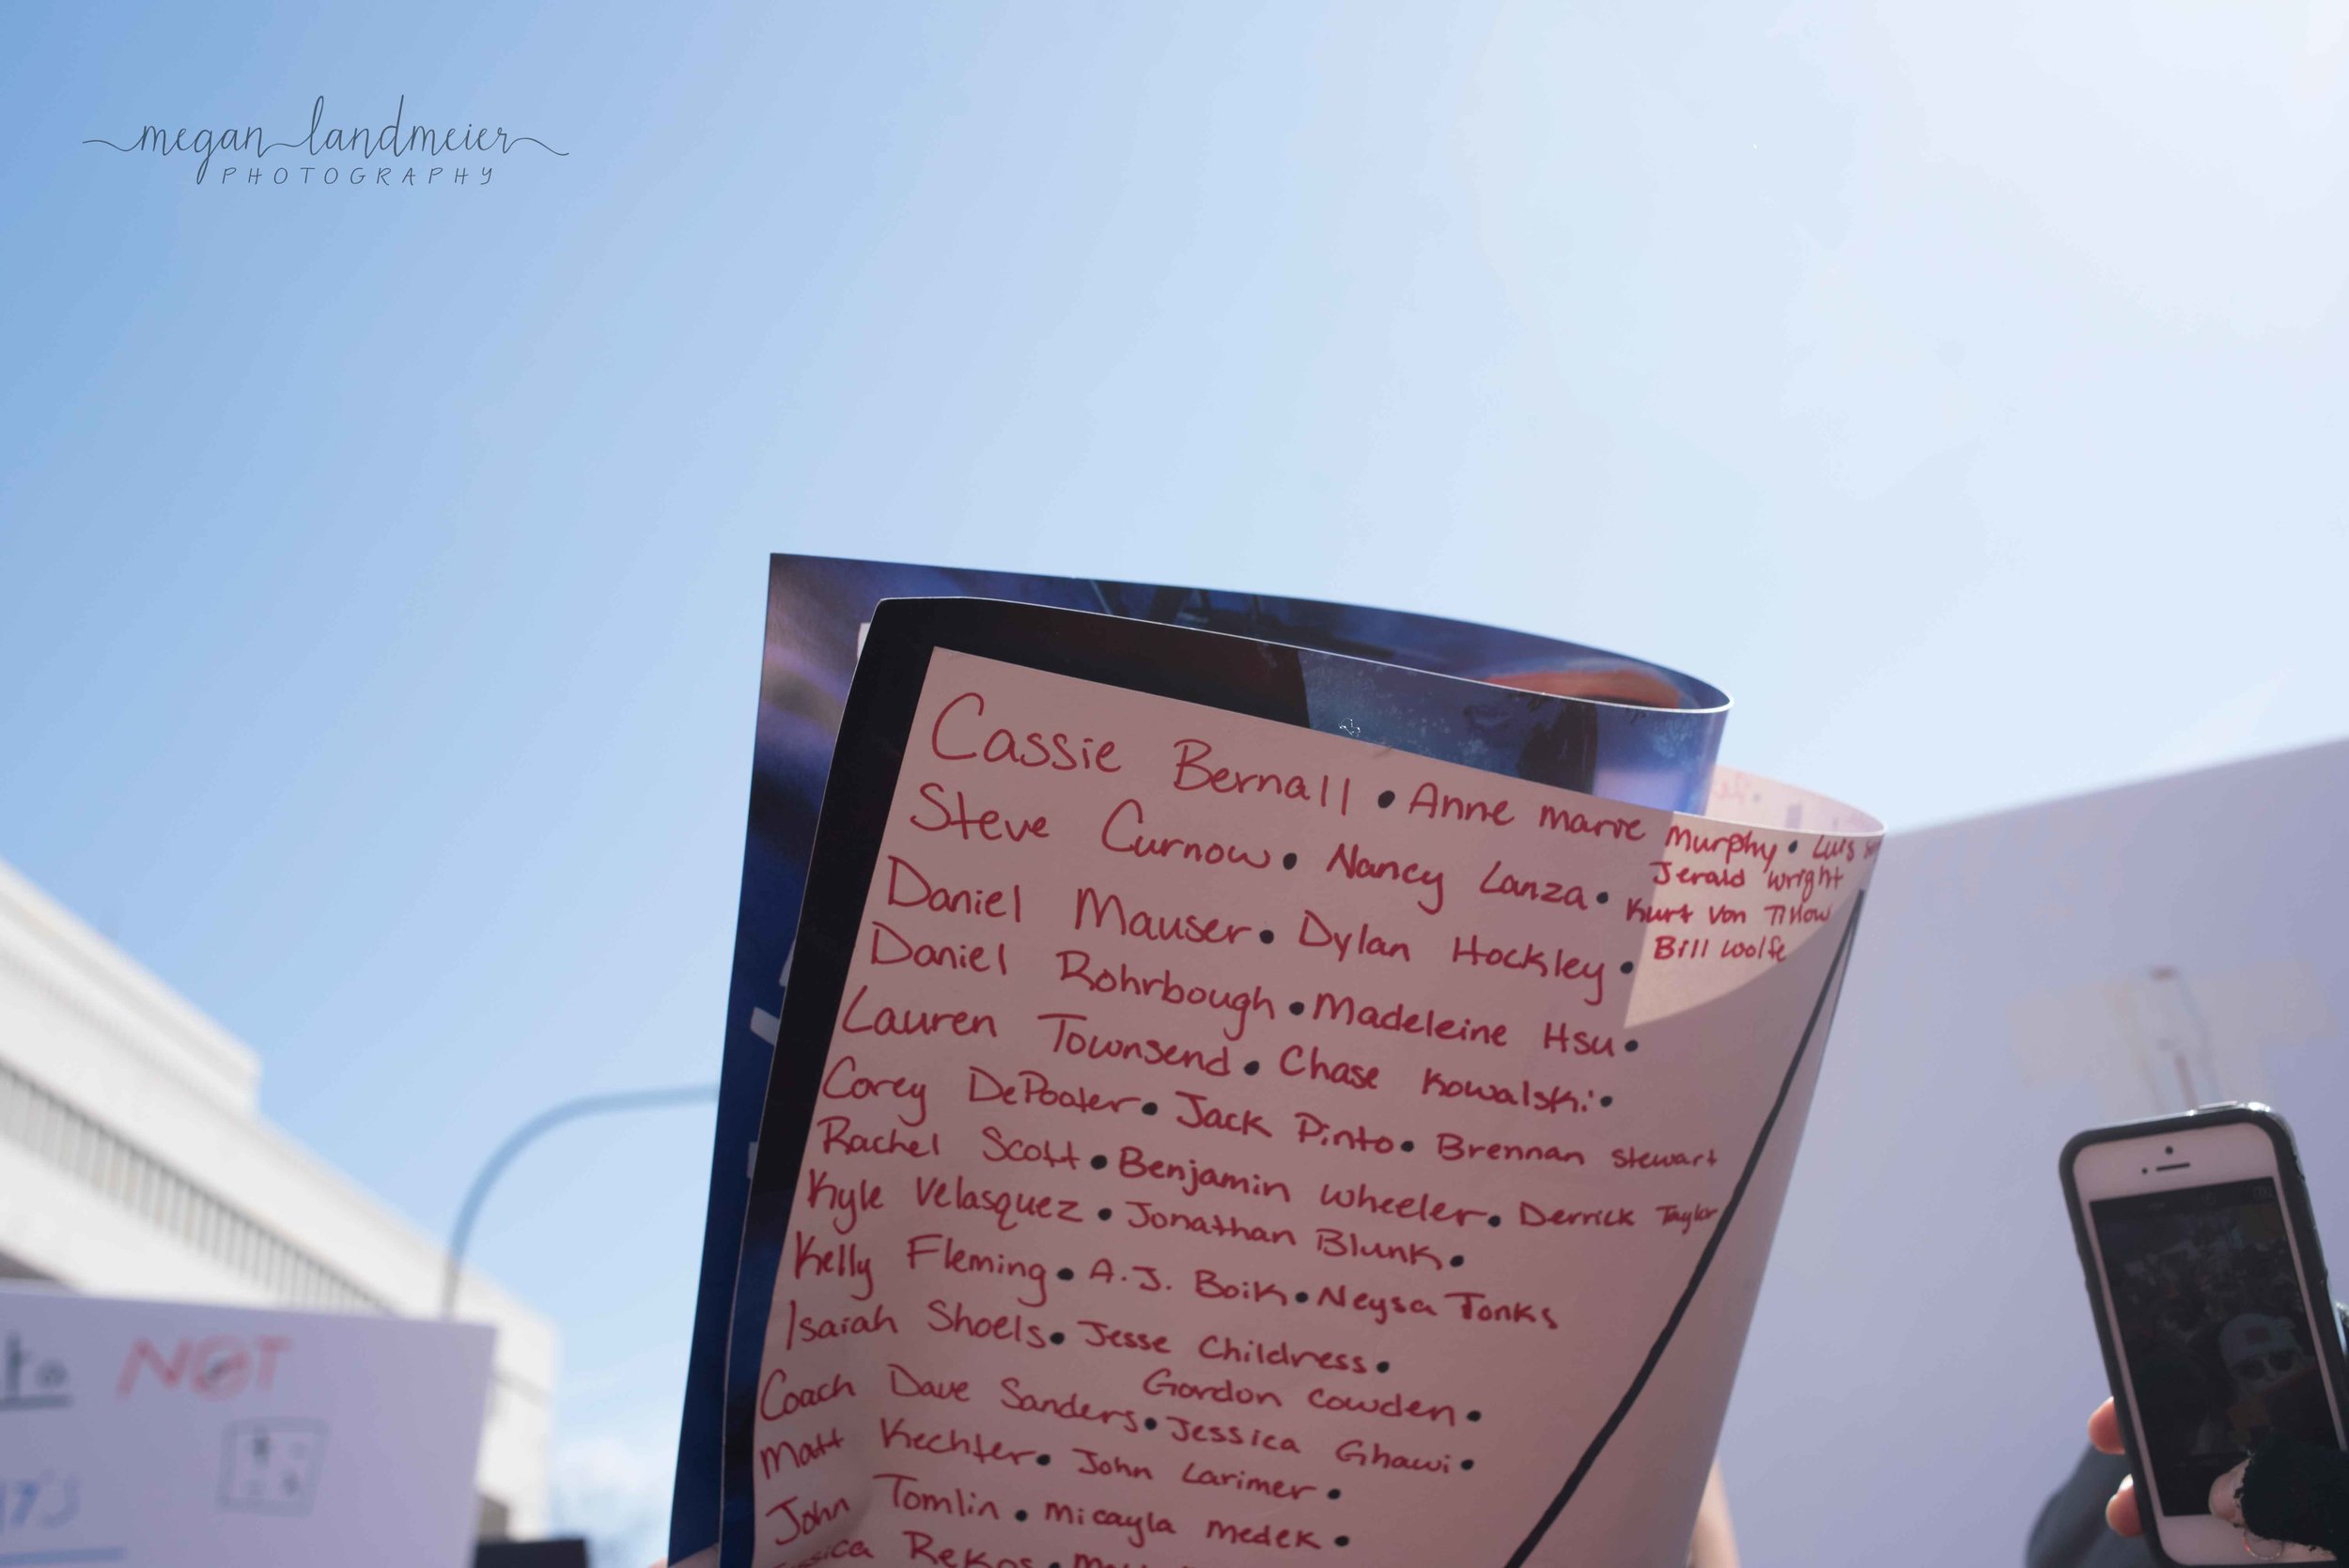 megan landmeier
PHOTOGRAPHY
Cassie Bernall • Anne Marie Murphy • Luis
Jerald Wright
Steve Curnow • Nancy Lanza • Kurt Von Tillow
Bill Wolfe
Daniel Mauser • Dylan Hockley •
Daniel Rohrbough • Madeleine Hsu •
Lauren Townsend • Chase Kowalski •
Corey DePooter • Jack Pinto • Brennan Stewart
Rachel Scott • Benjamin Wheeler • Derrick Taylor
Kyle Velasquez • Jonathan Blunk •
Kelly Fleming • A.J. Boik • Neysa Tonks
Isaiah Shoels • Jesse Childress •
Gordon Cowden •
Coach Dave Sanders • Jessica Ghawi •
Matt Kechter • John Larimer •
John Tomlin • Micayla Medek •
Rekos •
NOT